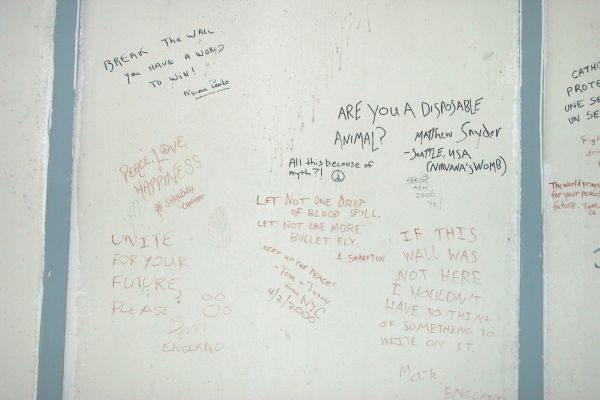 BREAK THE WALL
YOU HAVE A WORLD
TO WIN!
PEACE, LOVE
& HAPPINESS
SHANNA
UNITE
FOR YOUR
FUTURE
PLEASE
ENGLAND
ARE YOU A DISPOSABLE
ANIMAL?
MATTHEW Snyder
-SEATTLE, USA
(NIRVANA'S WOMB)
All this because of
myth?!
PEACE
ASH
2006
YO!
LET NOT ONE DROP
OF BLOOD SPILL.
LET NOT ONE MORE
BULLET FLY.
A. SHARPTON
KEEP UP THE PEACE!
-TOM + Jason
from NYC
4/2/2006
IF THIS
WALL WAS
NOT HERE
I WOULDN'T
HAVE TO THINK
OF SOMETHING TO
WRITE ON IT.
Mark
ENGLAND
CATHO
PROTE
UNE SE
UN SE
The world prays
for your peace
future. Tom,